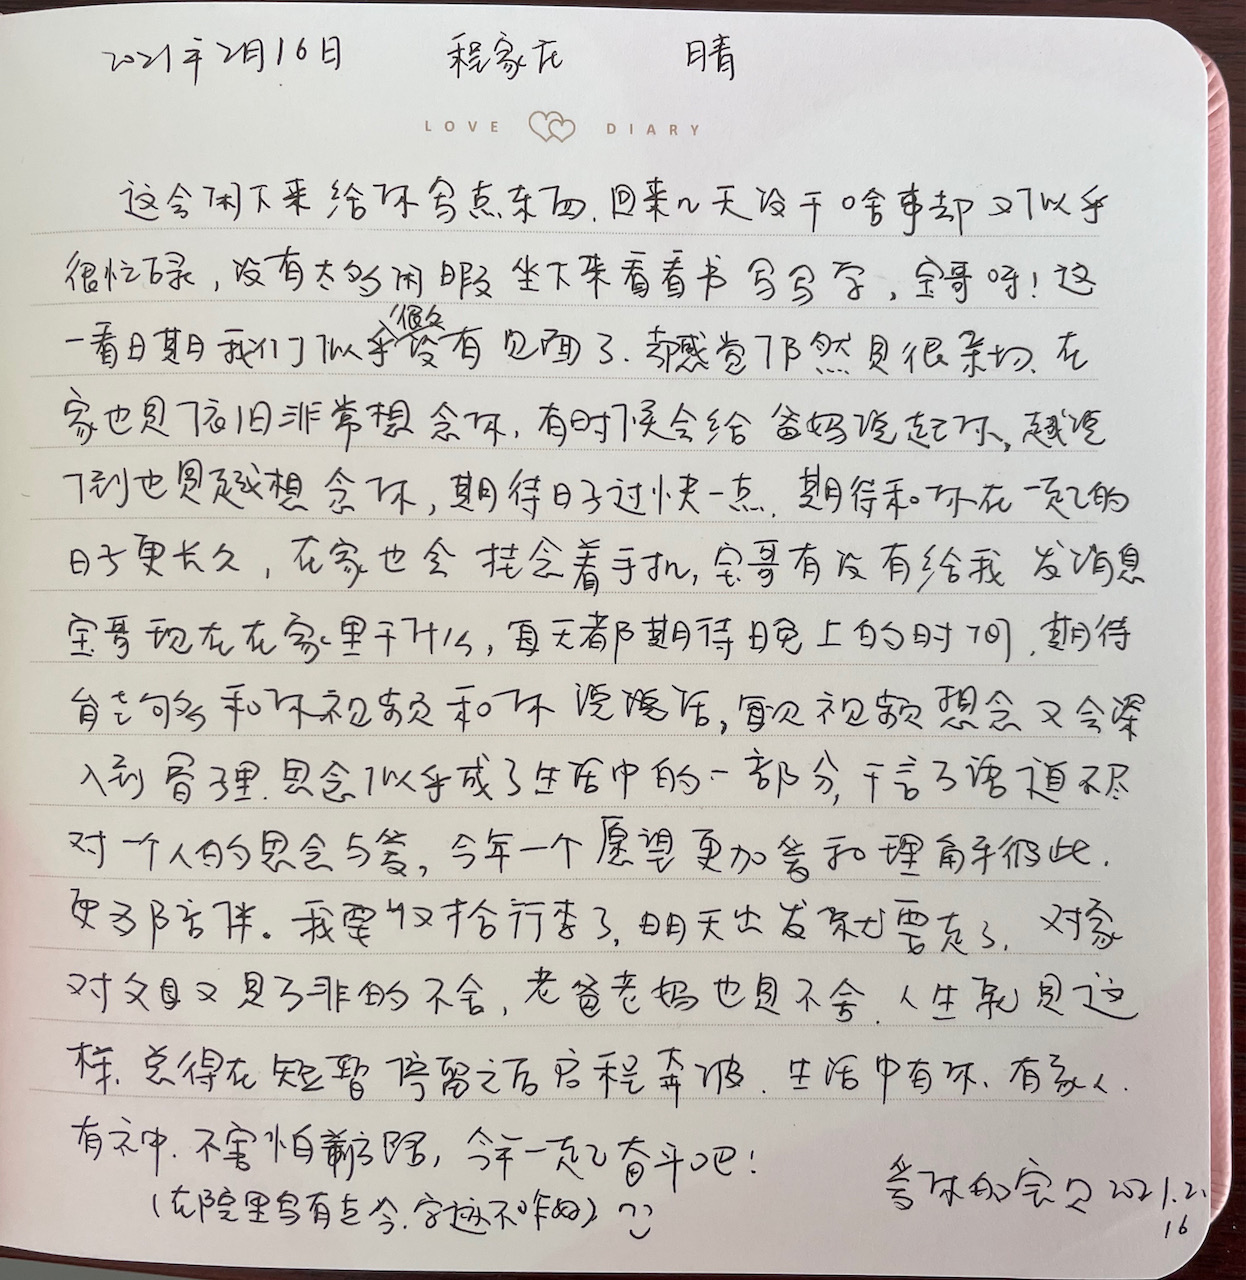 2021年2月16日 程家庄 晴
LOVE DIARY
这会闲下来给你写点东西，回来几天没干啥事却又似乎
很忙碌，没有太多闲暇坐下来看看书写写字，宝哥呀！这
一看日期我们似乎很久没有见面了．却感觉仍然是很亲切．在
家也是依旧非常想念你，有时候会给爸妈说起你，越说
到也是越想念你，期待日子过快一点，期待和你在一起的
日子更长久，在家也会挂念着手机，宝哥有没有给我发消息
宝哥现在在家里干什么，每天都期待晚上的时间，期待
能够和你视频和你说说话，每次视频想念又会深
入到骨子里．思念似乎成了生活中的一部分，千言万语道不尽
对一个人的思念与爱，今年一个愿望更加爱和理解彼此．
更多陪伴。我要收拾行李了，明天出发就要走了．对家
对父母又是万非的不舍，老爸老妈也是不舍．人生就是这
样．总得在短暂停留之后启程奔波．生活中有你、有家人．
有神．不害怕前路，今年一起奋斗吧！
（在院里写有点冷，字迹不咋好）
爱你的宝贝 2021.2.
16